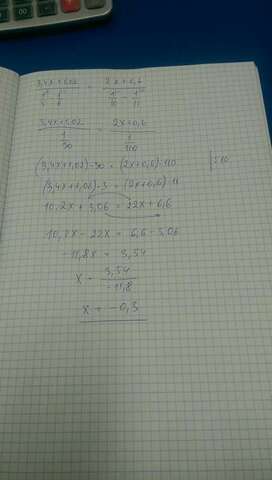 3,4x+1,02 = 2x+0,6
1 1 1 1
5 6 10 11
3,4x+1,02 = 2x+0,6
1 1
30 110
(3,4x+1,02)·30 = (2x+0,6)·110 |:10
(3,4x+1,02)·3 = (2x+0,6)·11
10,2x + 3,06 = 22x + 6,6
10,2x - 22x = 6,6 - 3,06
-11,8x = 3,54
x = 3,54
-11,8
x = -0,3